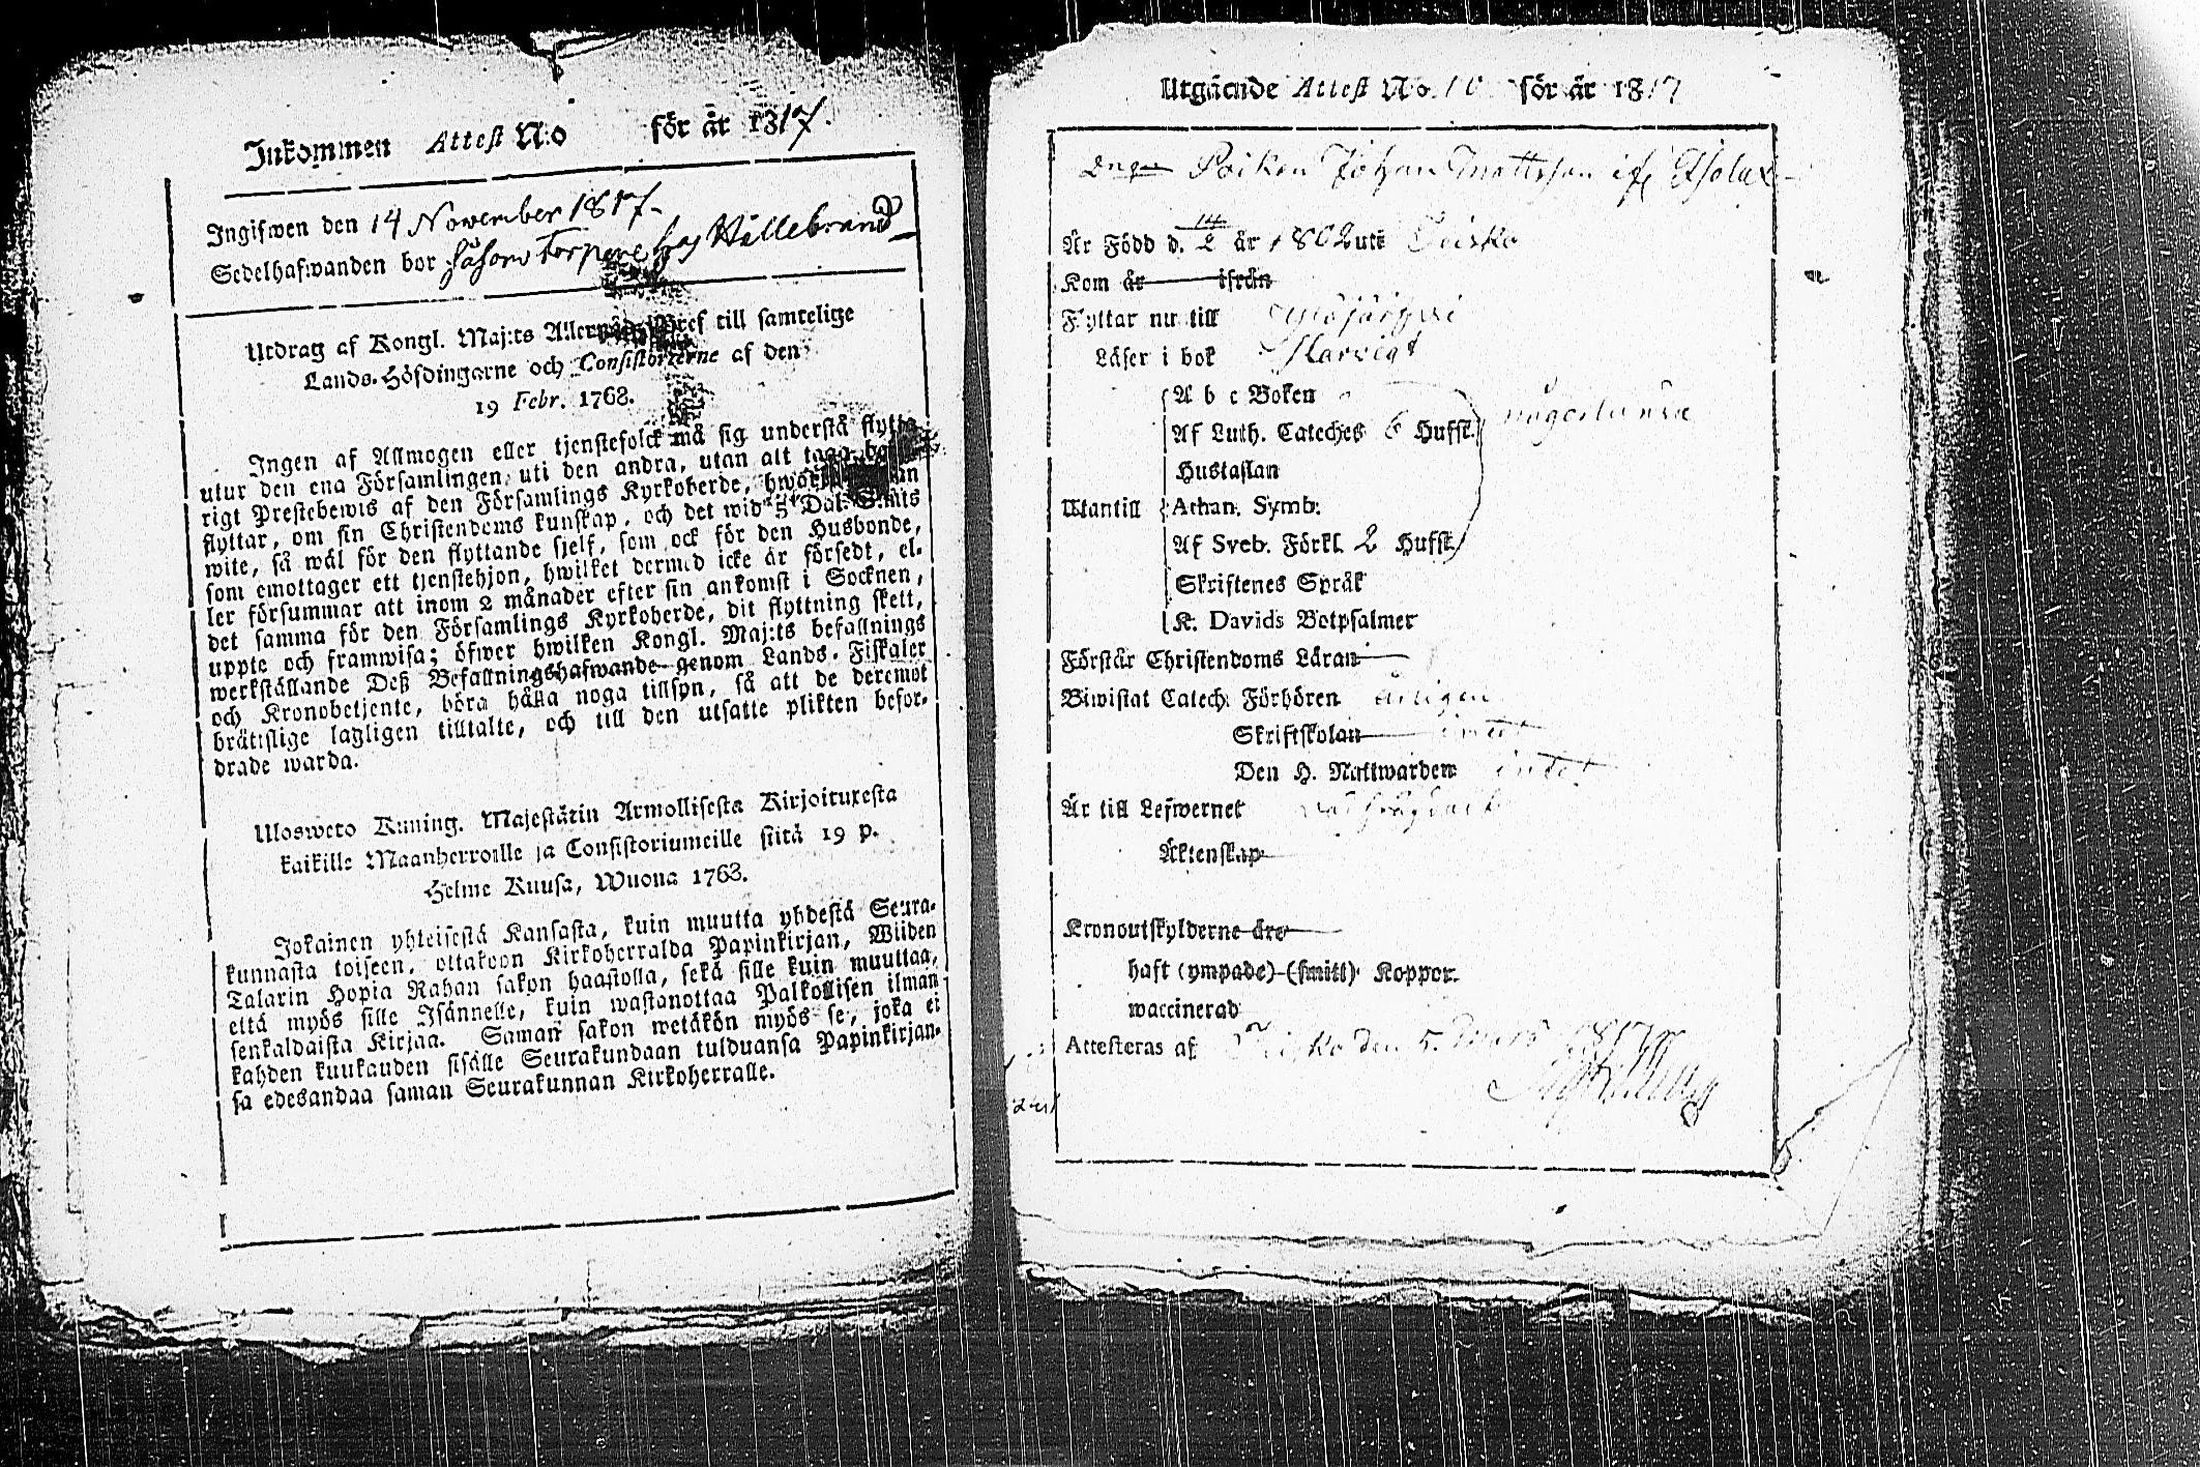 Inkommen Attest N:o för år 1817.
Ingifwen den 14 November 1817.
Sedelhafwanden bor såsom Torpare hos Hillebrand
Utdrag af Kongl. Maj:ts Allernåd. Bref till samtelige
Lands-Höfdingarne och Consistorierne af den
19 Febr. 1763.
Ingen af Allmogen eller tjenstefolck må sig understå flytta
utur den ena Församlingen uti den andra, utan att taga
rigt Prestebewis af den Församlings Kyrkoherde,
flyttar, om sin Christendoms kunskap, och det wid 5 Dal. S:mts
wite, så wäl för den flyttande sjelf, som ock för den Husbonde,
som emottager ett tjenstehjon, hwilket dermed icke är försedt, el-
ler försummar att inom 2 månader efter sin ankomst i Socknen,
det samma för den Församlings Kyrkoherde, dit flyttning skett,
uppte och framwisa; öfwer hwilken Kongl. Maj:ts befallnings
werkställande Deß Befallningshafwande genom Lands-Fiskaler
och Kronobetjente, böra hålla noga tillsyn, så att de deremot
bråttslige lagligen tilltalte, och till den utsatte plikten befor-
drade warda.
Ulosweto Kuning. Majestätin Armollisesta Kirjoituxesta
kaikille Maanherroille ja Consistoriumeille siitä 19 p.
Helme Kuusa, Wuona 1763.
Jokainen yhteisestä Kansasta, kuin muutta yhdestä Seura-
kunnasta toiseen, ottakoon Kirkoherralda Papinkirjan, Wiiden
Talarin Hopia Rahan sakon haastolla, sekä sille kuin muuttaa,
että myös sille Isännelle, kuin wastanottaa Palkollisen ilman
senkaldaista Kirjaa. Saman sakon wetäkön myös se, joka ei
kahden kuukauden sisälle Seurakundaan tulduansa Papinkirjan-
sa edesandaa saman Seurakunnan Kirkoherralle.
Utgående Attest No. 10 för år 1817
Poiken Johan Mattsson
Är Född d. 14/2 år 1802 uti Teisko
Kom år ifrån
Flyttar nu till Ylöjärfwi
Läser i bok
A b c Boken
Af Luth. Cateches 6 Hufst. någorlunda
Hustaflan
Utantill Athan. Symb.
Af Sveb. Förkl. 2 Hufst.
Skriftenes Språk
K. Davids Botpsalmer
Förstår Christendoms Läran
Biwistat Catech. Förhören årligen
Skriftskolan intet
Den H. Nattwarden intet
Är till Lefwernet
Äktenskap
Kronoutskylderne äro
haft (ympade) (smitt) Koppor.
waccinerad
Attesteras af Teisko den 5. 1817